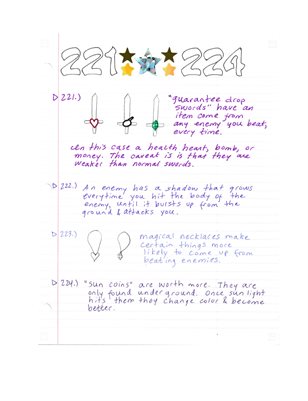 221 224
221.) "guarantee drop
swords" have an
item come from
any enemy you beat,
every time.
In this case a health heart, bomb, or
money. The caveat is is that they are
weaker than normal swords.
222.) An enemy has a shadow that grows
everytime you hit the body of the
enemy, until it bursts up from the
ground & attacks you.
223.) magical necklaces make
certain things more
likely to come up from
beating enemies.
224.) "Sun coins" are worth more. They are
only found underground. Once sunlight
hits them they change color & become
better.